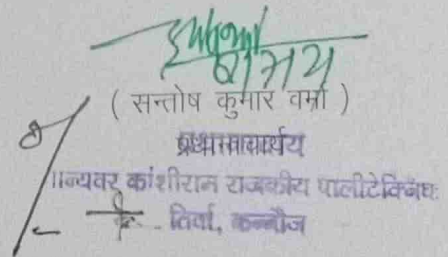 ( सन्तोष कुमार वर्मा )
प्रधानाचार्य
मान्यवर कांशीराम राजकीय पालीटेक्निक
तिर्वा, कन्नौज